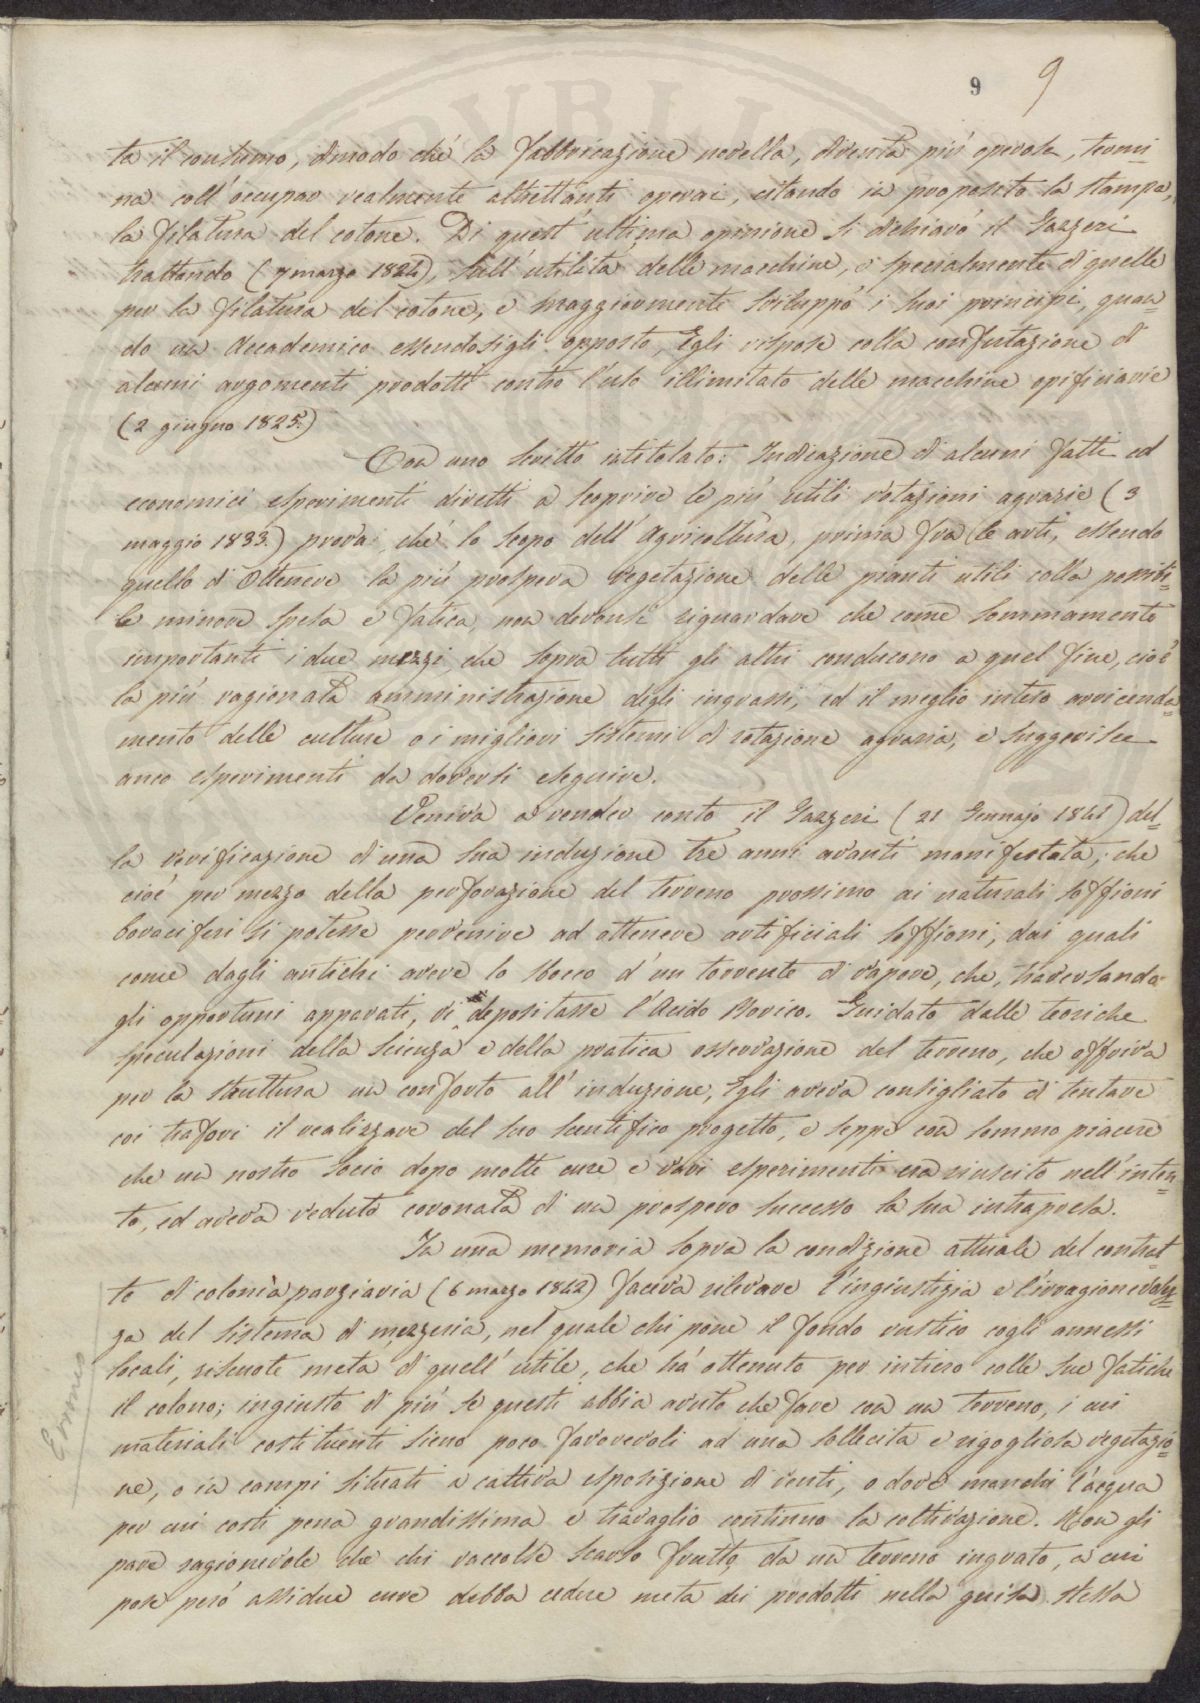 9 9
ta il consumo, dimodo ché la fabbricazione novella, divenuta più operosa, termi=
na coll'occupar realmente altrettanti operai, citando in proposito la stampa,
la filatura del cotone. Di quest'ultima opinione si dichiarò il Gazzeri
trattando (7 marzo 1824), sull'utilità delle macchine, e specialmente di quelle
per la filatura del cotone, e maggiormente sviluppò i suoi principj, quan=
do un Accademico essendosigli opposto, Egli rispose colla confutazione di
alcuni argomenti prodotti contro l'uso illimitato delle macchine opificiarie
(2 giugno 1825.)
Con uno scritto intitolato: Indicazione di alcuni fatti ed
economici esperimenti diretti a scoprire le più utili rotazioni agrarie (3
maggio 1833.) prova, ché lo scopo dell'Agricoltura, prima fra le arti, essendo
quello di ottenere la più prospera vegetazione delle pianti utili colla possibi=
le minore spesa e fatica, non devonsi riguardare che come sommamente
importanti i due mezzi, che sopra tutti gli altri conducono a quel fine, cioè
la più ragionata amministrazione degli ingrassi, ed il meglio inteso avvicenda=
mento delle culture o i migliori sistemi di rotazione agraria, e suggerisce
anco esperimenti da doversi eseguire.
Veniva a render conto il Gazzeri (21 Gennajo 1841) del=
la verificazione d'una sua induzione tre anni avanti manifestata; che
cioè per mezzo della perforazione del terreno prossimo ai naturali soffioni
boraciferi si potesse pervenire ad ottenere artificiali soffioni, dai quali
come dagli antichi avere lo sbocco d'un torrente di vapore, che, traversando
gli opportuni apparati, vi depositasse l'Acido Borico. Guidato dalle teoriche
speculazioni della scienza e della pratica osservazione del terreno, che offriva
per la struttura un conforto all'induzione, Egli aveva consigliato di tentare
coi trafori il realizzare del suo scientifico progetto, e seppe con sommo piacere
che un nostro socio dopo molte cure e varj esperimenti era riuscito nell'inten=
to, ed aveva veduto coronata di un prospero successo la sua intrapresa.
In una memoria sopra la condizione attuale del contrat=
to di colonia parziaria (6 marzo 1842) faceva rilevare l'ingiustizia e l'irragionevolez=
za del sistema di mezzeria, nel quale chi pone il fondo rustico cogli annessi
locali, riscuote metà di quell'utile, che ha ottenuto per intiero colle sue fatiche
il colono; ingiusto di più se questi abbia avuto che fare con un terreno, i cui
materiali costituenti sieno poco favorevoli ad una sollecita e rigogliosa vegetazio=
ne, o in campi situati a cattiva esposizione di venti, o dove manchi l'acqua
per cui costi pena grandissima e travaglio continuo la coltivazione. Non gli
pare ragionevole che chi raccolse scarso frutto da un terreno ingrato, a cui
pose però assidue cure debba cedere metà dei prodotti nella guisa stessa